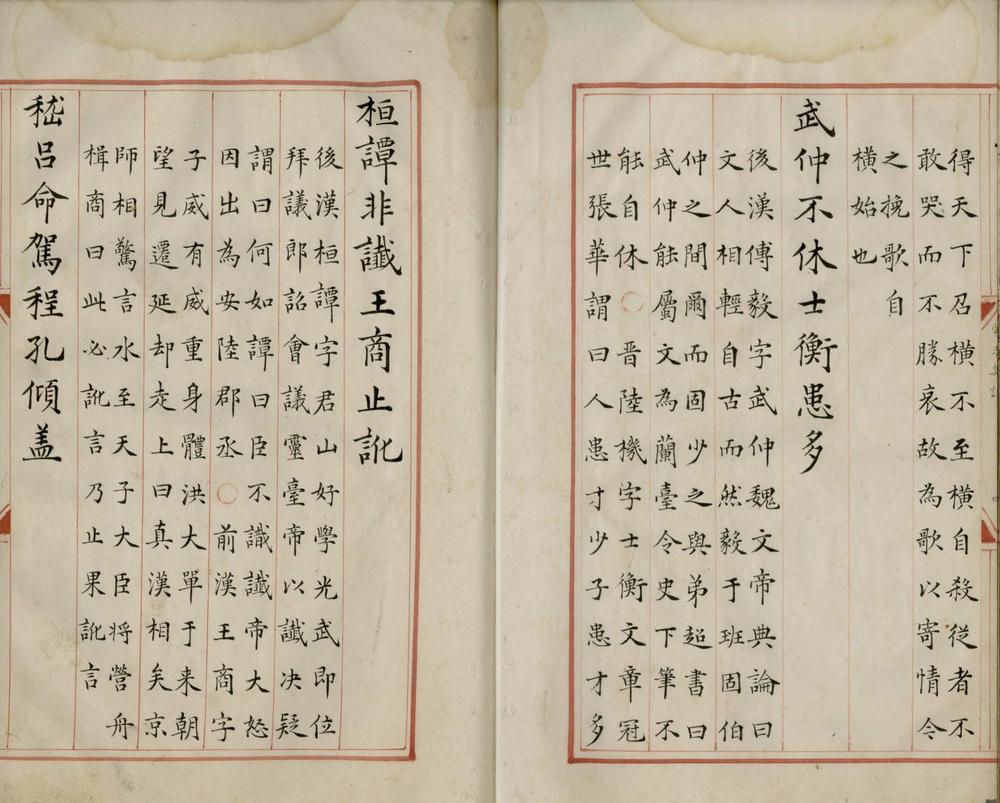 得天下召橫不至橫自殺從者不
敢哭而不勝哀故為歌以寄情令
之挽歌自
橫始也
武仲不休士衡患多
後漢傅毅字武仲魏文帝典論曰
文人相輕自古而然毅于班固伯
仲之間爾而固少之與弟超書曰
武仲能屬文為蘭臺令史下筆不
能自休○晋陸機字士衡文章冠
世張華謂曰人患才少子患才多
桓譚非讖王商止訛
後漢桓譚字君山好學光武即位
拜議郎詔會議靈臺帝以讖决疑
謂曰何如譚曰臣不識讖帝大怒
因出為安陸郡丞○前漢王商字
子威有威重身體洪大單于来朝
望見遷延却走上曰真漢相矣京
師相驚言水至天子大臣将營舟
楫商曰此必訛言乃止果訛言
嵇呂命駕程孔傾盖